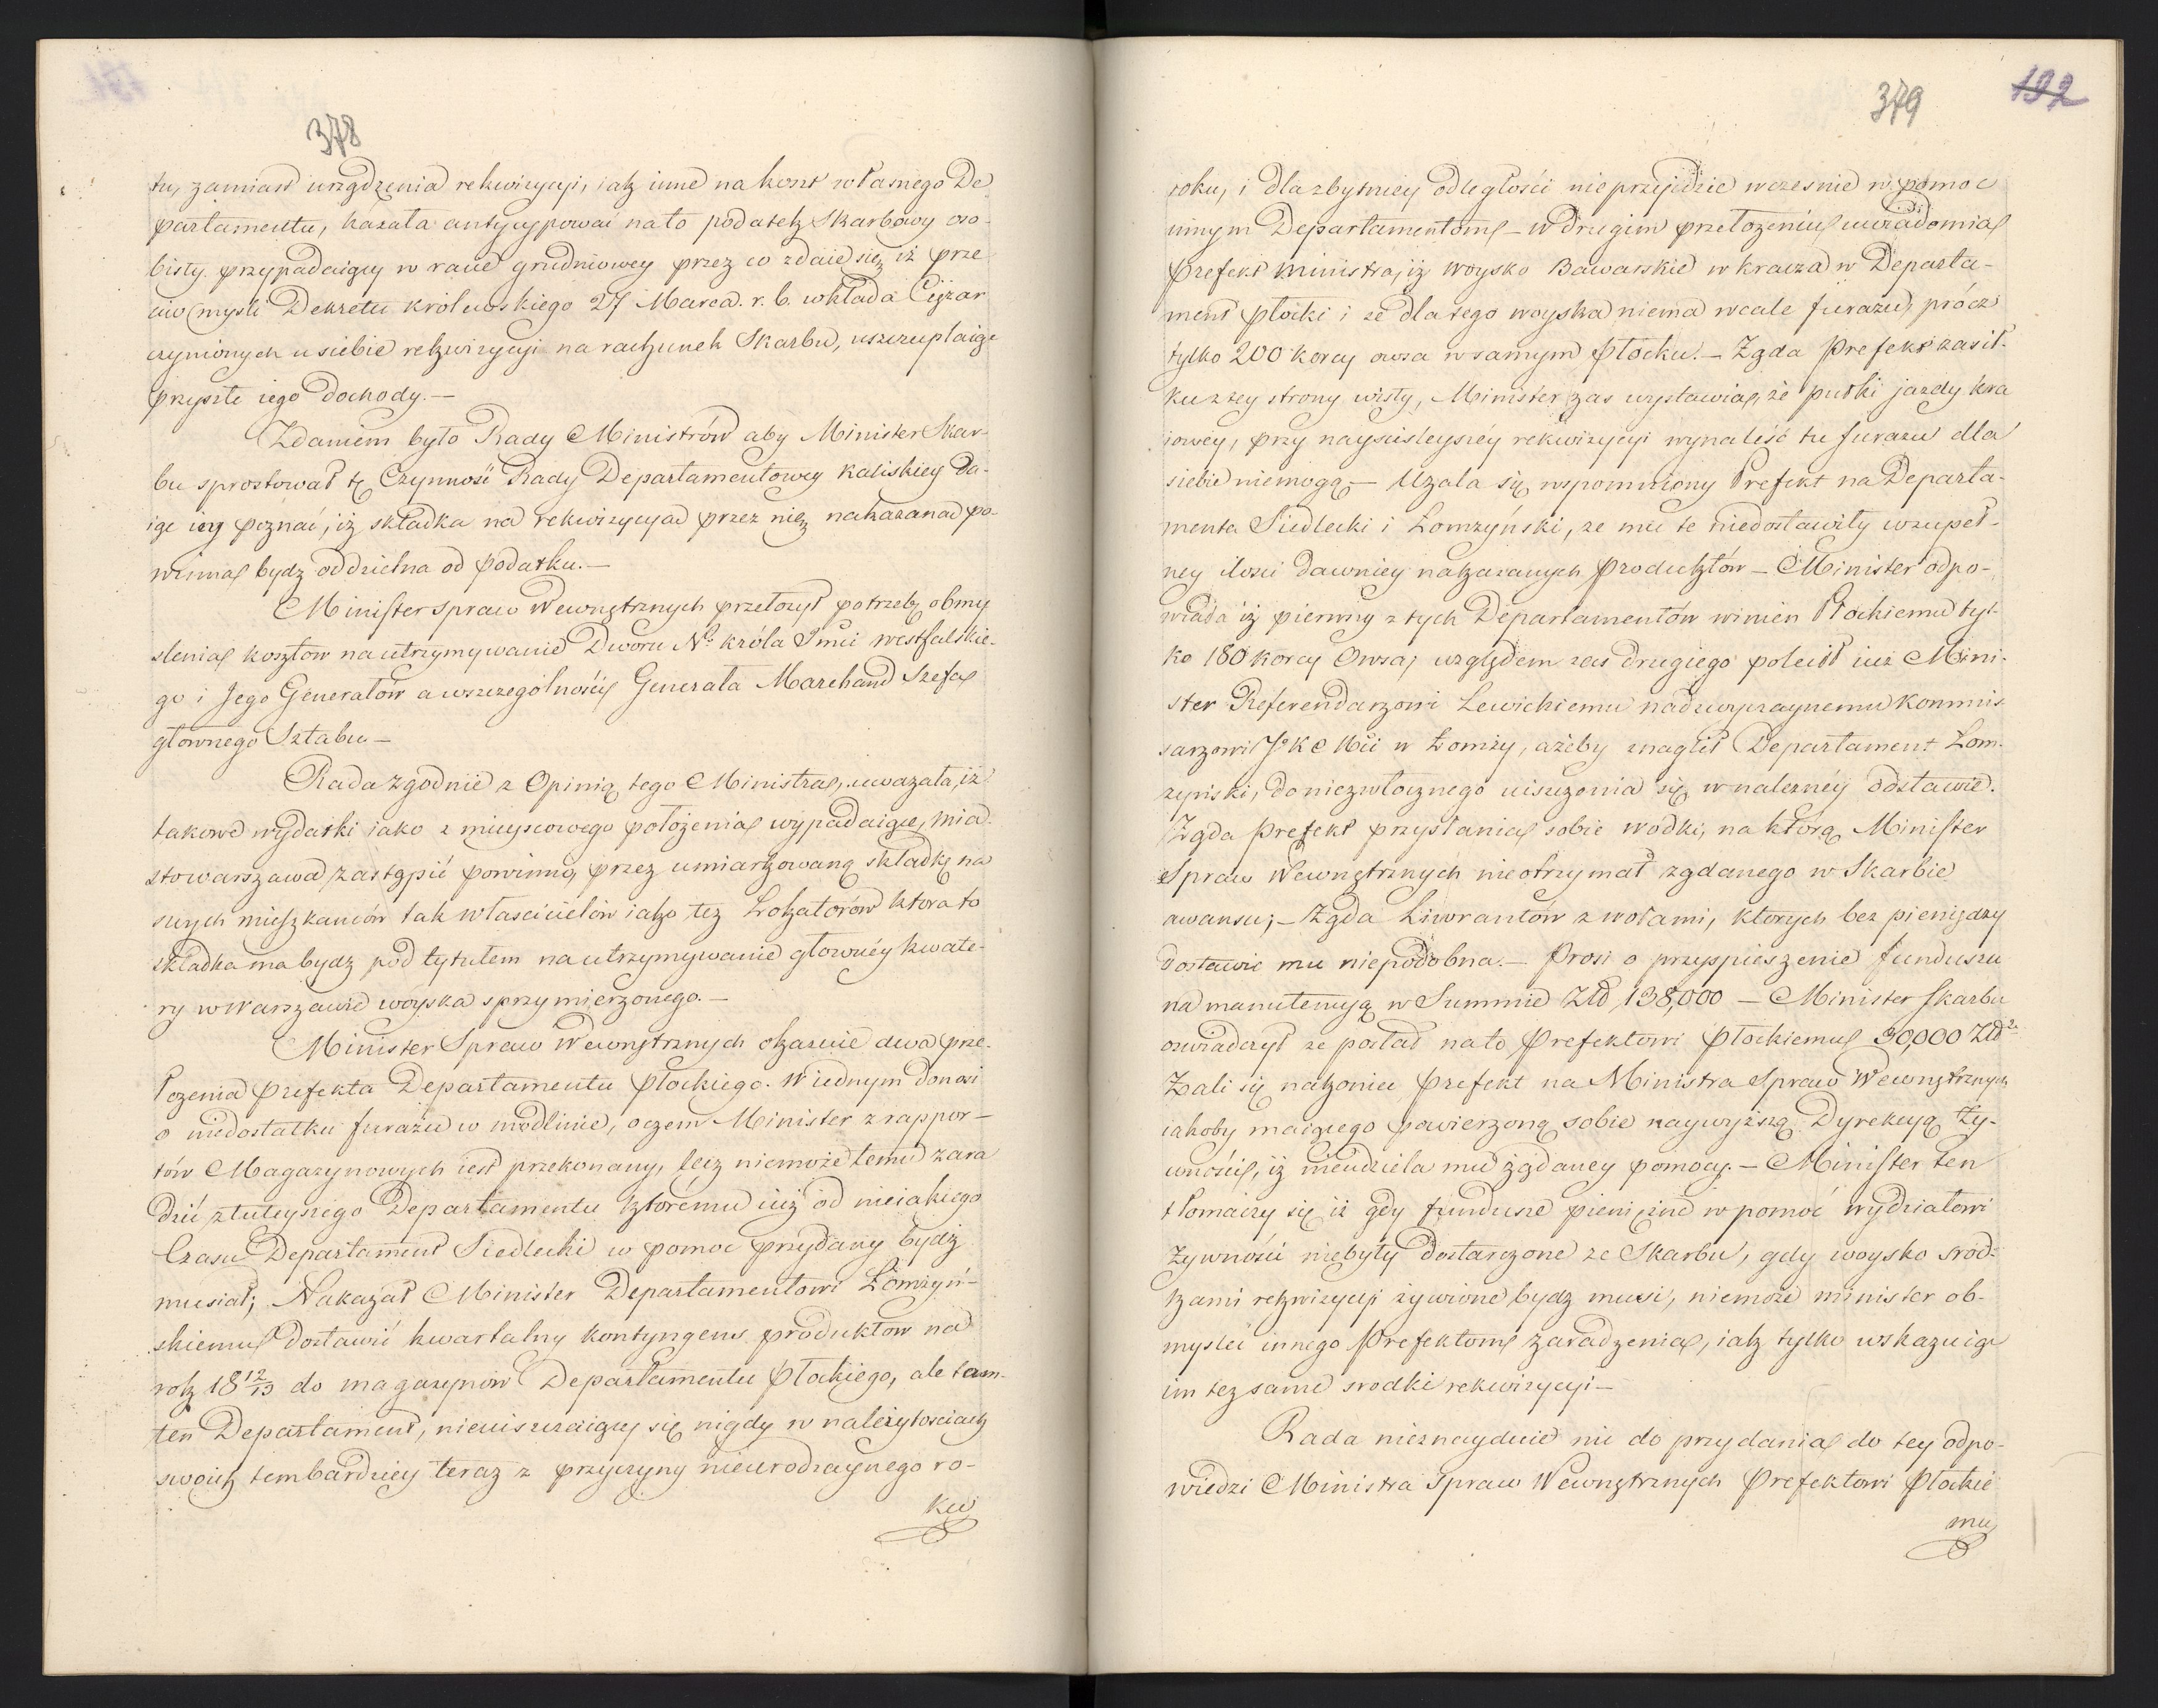 378
tu, zamiast urządzenia rekwizycyi, iak inne na koszt własnego De
partamentu, kazała antycypować na to podatek Skarbowy oso-
bisty przypadaiący w racie grudniowey przez co zdaie się iż prze
ciw myśli Dekretu królewskiego 27 Marca r. b. wkłada Ciężar
czynionych u siebie rekwizycyi na rachunek Skarbu, uszczuplaiąc
przyszłe iego Dochody.—
Zdaniem było Rady Ministrów aby Minister Skar-
bu sprostował tę Czynność Rady Departamentowey Kaliskiey Da-
iąc iey poznać, iż składka na rekwizycya przez nię nakazana po-
winna bydz oddzielna od podatku.—
Minister Spraw Wewnętrznych przełożył potrzebę obmy
slenia kosztow na utrzymywanie Dworu No króla Jmci westfalskie-
go i Jego Generałów a wszczególności Generała Marchand Szefa
głównego Sztabu—
Rada zgodnie z Opinią tego Ministra, uważała, iż
takowe wydatki iako z mieyscowego położenia wypadaiące, mia-
sto warszawa zastąpić powinno, przez umiarkowaną składkę na
swych mieszkańców tak właścicielów iako tez Lokatorów która to
składka ma bydz pod tytułem na utrzymywanie głowney kwate-
ry w Warszawie woyska sprzymierzonego.—
Minister Spraw Wewnętrznych okazuie dwa prze-
łożenia Prefekta Departamentu Płockiego. W iednym donosi
o niedostatku furażu w modlinie, o czem Minister z rappor-
tów Magazynowych iest przekonany, lecz niemoże temu zara
dzić z tuteyszego Departamentu któremu iuż od nieiakiego
Czasu Departament Siedlecki w pomoc przydany bydź
musiał; Nakazał Minister Departamentowi Łomżyń-
skiemu dostawić kwartalny kontyngens produktów na
rok 18 12/13 do magazynów Departamentu Płockiego, ale tam-
ten Departament, nieuiszczaiący się nigdy w należytosciach
swoich tembardziey teraz z przyczyny nieurodzaynego ro-
ku
379
192
roku, i dla zbytniey odległości nie przyjdzie wczesnie w pomoc
innym Departamentom— w drugim przełożeniu uwiadomia
Prefekt ministra, iż woysko Bawarskie wkracza w Departa-
ment płocki i że dla tego woyska niema wcale furażu, prócz
tylko 200 korcy owsa w samym Płocku.— Żąda Prefekt zasił-
ku z tey strony wisły, Minister zas wystawia, że pułki jazdy kra
iowéy, przy nayściśleyszéy rekwizycyi wynaleść tu furażu dla
siebie niemogą.— Użala się wspomniony Prefekt na Departa-
menta Siedlecki i Łomżyński, ze mu te niedostawiły w zupeł-
ney ilosci dawniey nakazanych Produktów— Minister odpo-
wiada iż pierwszy z tych Departamentów winien Płockiemu tyl-
ko 180 korcy Owsa; względem zas drugiego polecił iuż Mini-
ster Referendarzowi Lewickiemu nadzwyczaynemu Kommis
sarzowi Jo K Mci w Łomży, ażeby znaglił Departament Łom-
żyński, do niezwłocznego uiszczenia się w nalezney dostawie.
Żąda Prefekt przysłania sobie wódki, na którą Minister
Spraw Wewnętrznych nieotrzymał żądanego w Skarbie
awansu;— Żąda Liwrantów z wołami, ktorych bez pieniędzy
dostawić mu niepodobna.— Prosi o przyspieszenie funduszu
na manutencyą w Summie Złb 138,000 — Minister Skarbu
oswiadczył ze posłał na to Prefektowi Płockiemu 30,000 Złb
Żali się nakoniec Prefekt na Ministra Spraw Wewnętrznych
iakoby maiącego powierzoną sobie naywyższą Dyrekcyą ży-
wności, iż nieudziela mu żądaney pomocy.— Minister ten
tłomaczy się iż gdy fundusze pieniężne w pomoć wydziałowi
żywności niebyły dostarczone ze Skarbu, gdy woysko środ-
kami rekwizycyi żywione bydz musi, niemoże minister ob-
myslić innego Prefektom zaradzenia, iak tylko wskazuiąc
im też same srodki rekwizycyi—
Rada nieznayduie nic do przydania do tey odpo-
wiedzi Ministra Spraw Wewnętrznych Prefektowi Płockie
mu